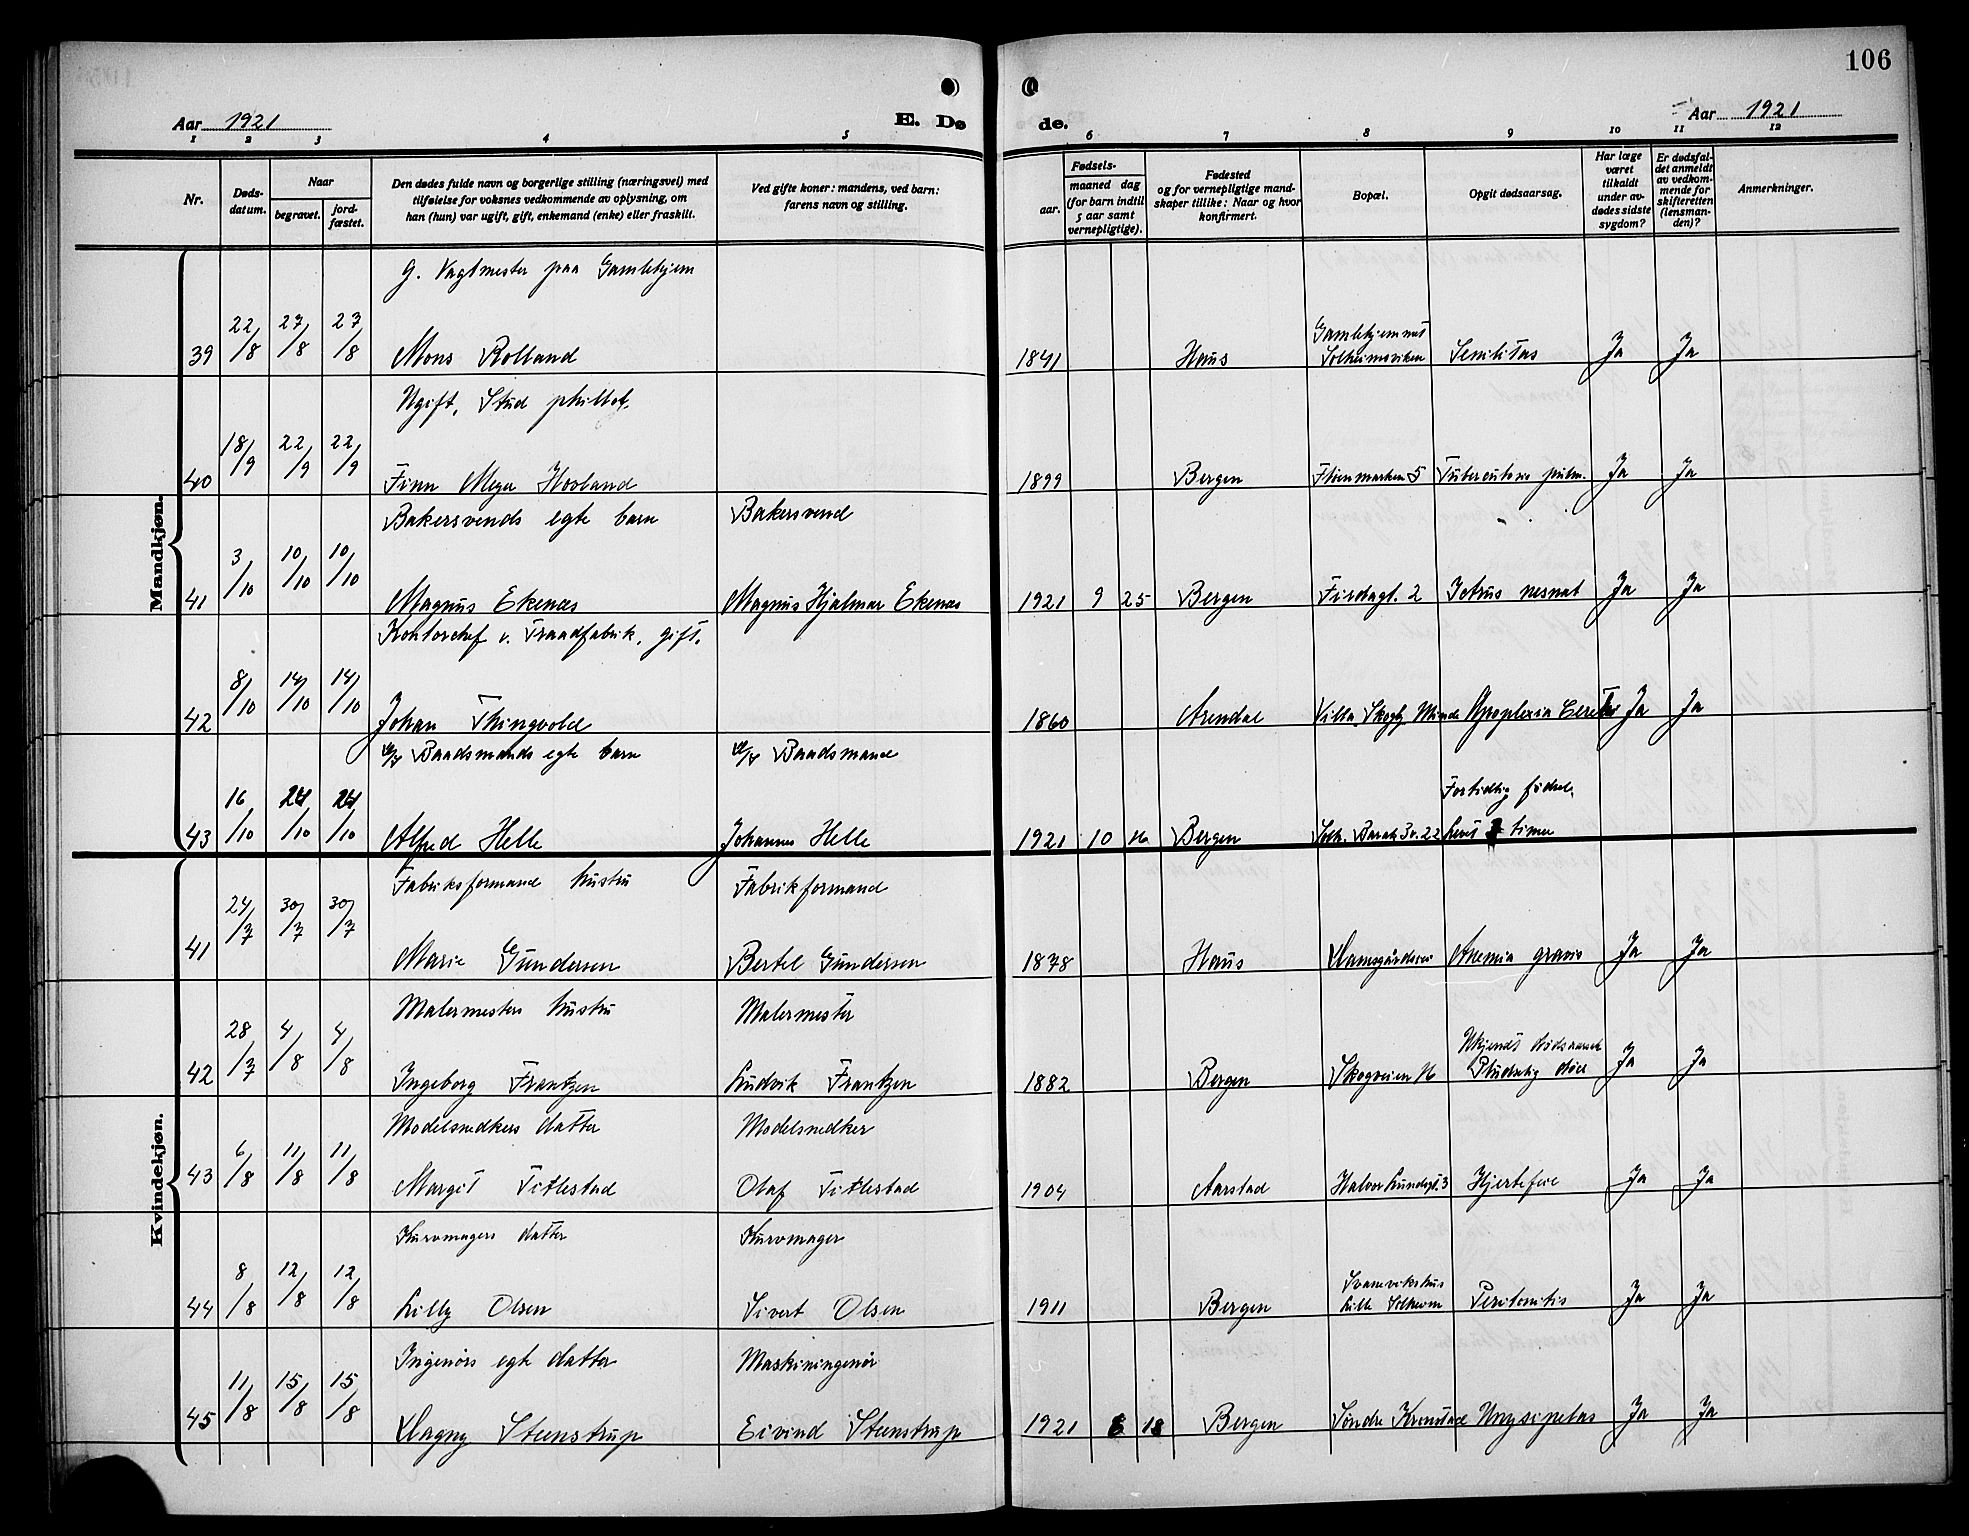 106
Aar 1921
E. Dø
de.
Aar 1921
1 2 3 4 5 6 7 8 9 10 11 12
Nr.
Døds-
datum.
Naar
begravet.
jord-
fæstet.
Den dødes fulde navn og borgerlige stilling (næringsvei) med
tilføielse for voksnes vedkommende av oplysning, om
han (hun) var ugift, gift, enkemand (enke) eller fraskilt.
Ved gifte koner: mandens, ved barn:
farens navn og stilling.
Fødsels-
aar.
maaned dag
(for barn indtil
5 aar samt
vernepligtige).
Fødested
og for vernepligtige mand-
skaper tillike: Naar og hvor
konfirmert.
Bopæl.
Opgit dødsaarsag.
Har læge
været
tilkaldt
under av-
dødes sidste
sygdom?
Er dødsfal-
det anmeldt
av vedkom-
mende for
skifteretten
(lensman-
den)?
Anmerkninger.
Mandkjøn.
G. Vagtmester paa Gamlehjem
Gamlehjemmet
39 22/8 27/8 27/8 Mons Rolland 1841 Haus Solheimsviken Senilitas Ja Ja
Ugift, Stud
40 18/9 22/9 22/9 Finn Meyer Hovland 1899 Bergen 5 Tuberculosis pulm. Ja Ja
Bakersvends egte barn Bakersvend
41 3/10 10/10 10/10 Magnus Ekenæs Magnus Hjalmar Ekenæs 1921 9 25 Bergen Firdagt. 2 Ja Ja
Kontorchef v. Traadfabrik, gift.
42 8/10 14/10 14/10 Johan Thingvold 1860 Arendal Villa Minde Apoplexia Ja Ja
Baadsmands egte barn Baadsmand
Fortidlig fødsel.
43 16/10 24/10 24/10 Alfred Helle Johannes Helle 1921 10 16 Bergen Solh. Barak 3 v. 22 Levet timer
Kvindekjøn.
Fabriksformand hustru Fabrikformand
41 24/7 30/7 30/7 Marie Gundersen Bertel Gundersen 1878 Haus Anemia gravis Ja Ja
Malermesters hustru Malermester
Ukjendt dødsaarsak
42 28/7 4/8 4/8 Ingeborg Frantzen Ludvik Frantzen 1882 Bergen Skogveien 16 Pludselig død Ja Ja
Modelsnedkers datter Modelsnedker
43 6/8 11/8 11/8 Margit Titlestad Olaf Titlestad 1904 Aarstad Halvor Lundsgt. 3 Hjertefeil Ja Ja
Kurvmagers datter Kurvmager
Svanevikshus
44 8/8 12/8 12/8 Lilly Olsen Sivert Olsen 1911 Bergen Lille Solheim Peritonitis Ja Ja
Ingeniørs egte datter Maskiningeniør
45 11/8 15/8 15/8 Dagny Steenstrup Eivind Steenstrup 1921 6 18 Bergen Søndre Kronstad Ja Ja